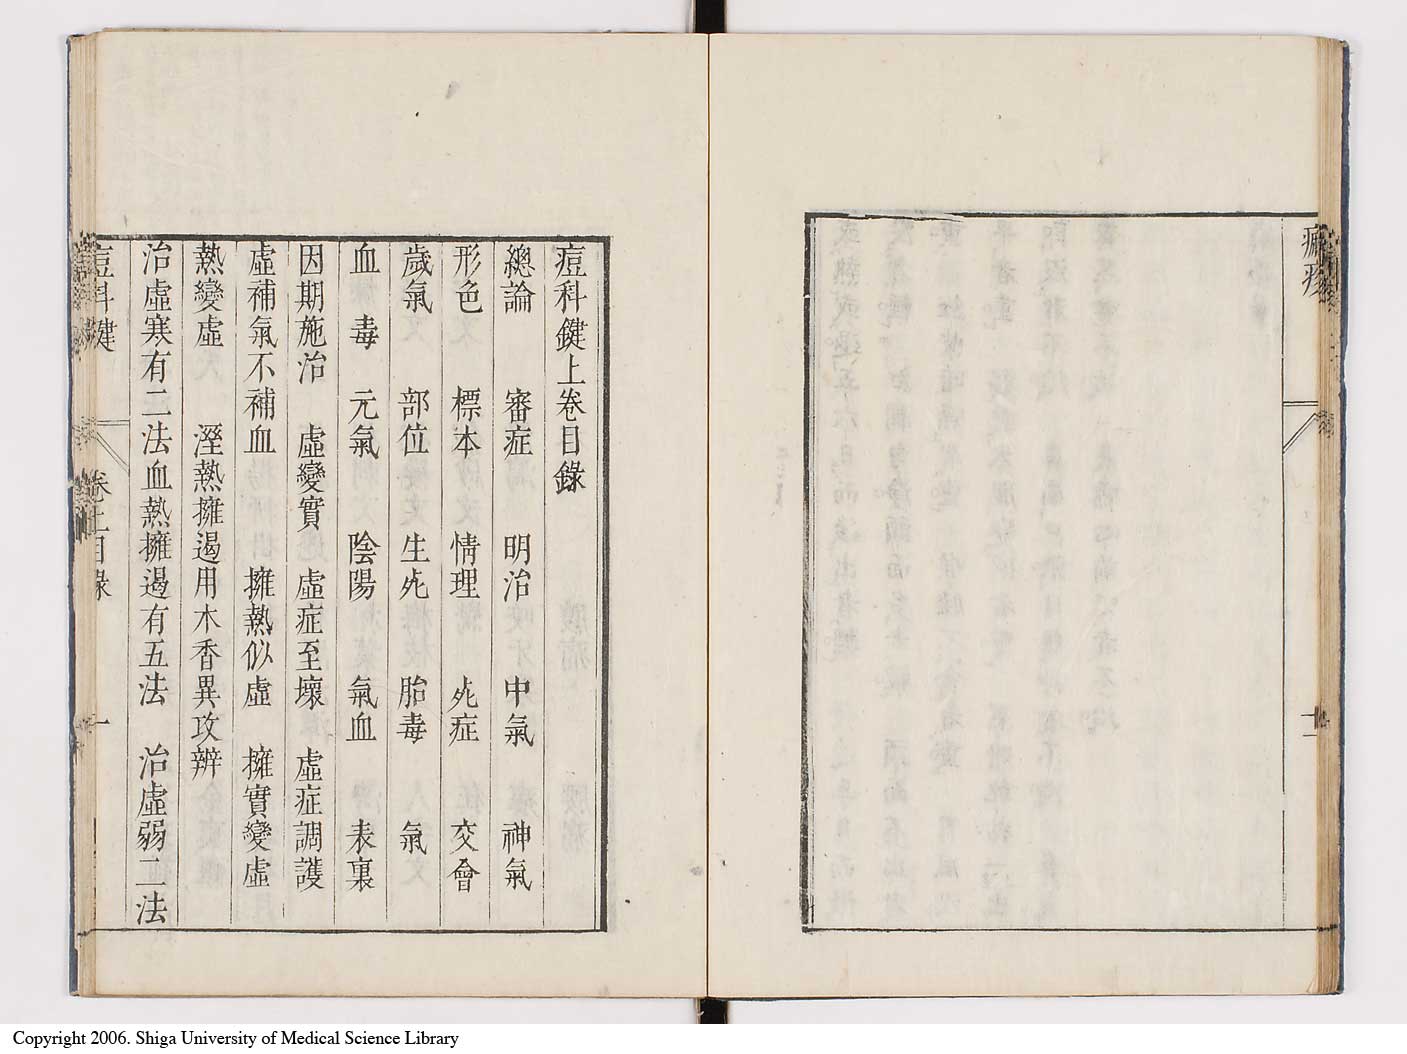 痘科鍵上卷目錄
總論 審症 明治 中氣 神氣
形色 標本 情理 死症 交會
歲氣 部位 生死 胎毒 氣
血 毒 元氣 陰陽 氣血 表裏
因期施治 虛變實 虛症至壞 虛症調護
虛補氣不補血 擁熱似虛 擁實變虛
熱變虛 溼熱擁遏用木香異攻辨
治虛寒有二法血熱擁遏有五法 治虛弱二法
痘科鍵 卷上目錄 一
Copyright 2006. Shiga University of Medical Science Library